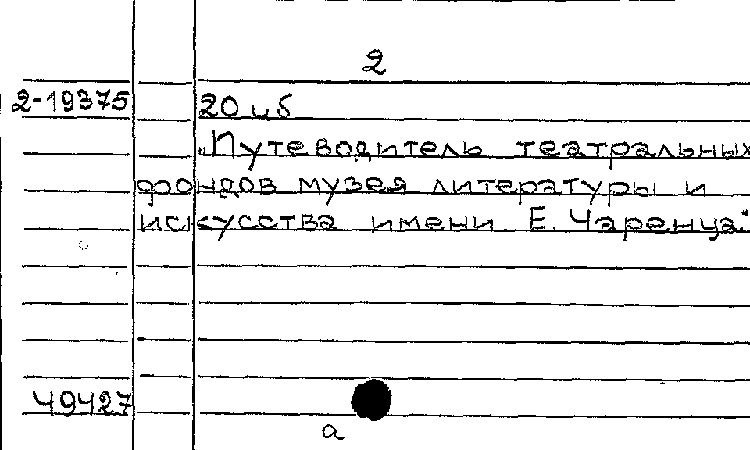 2
2-19375 20 цб
„Путеводитель театральных
фондов музея литературы и
искусства имени Е. Чаренца"
49427
а